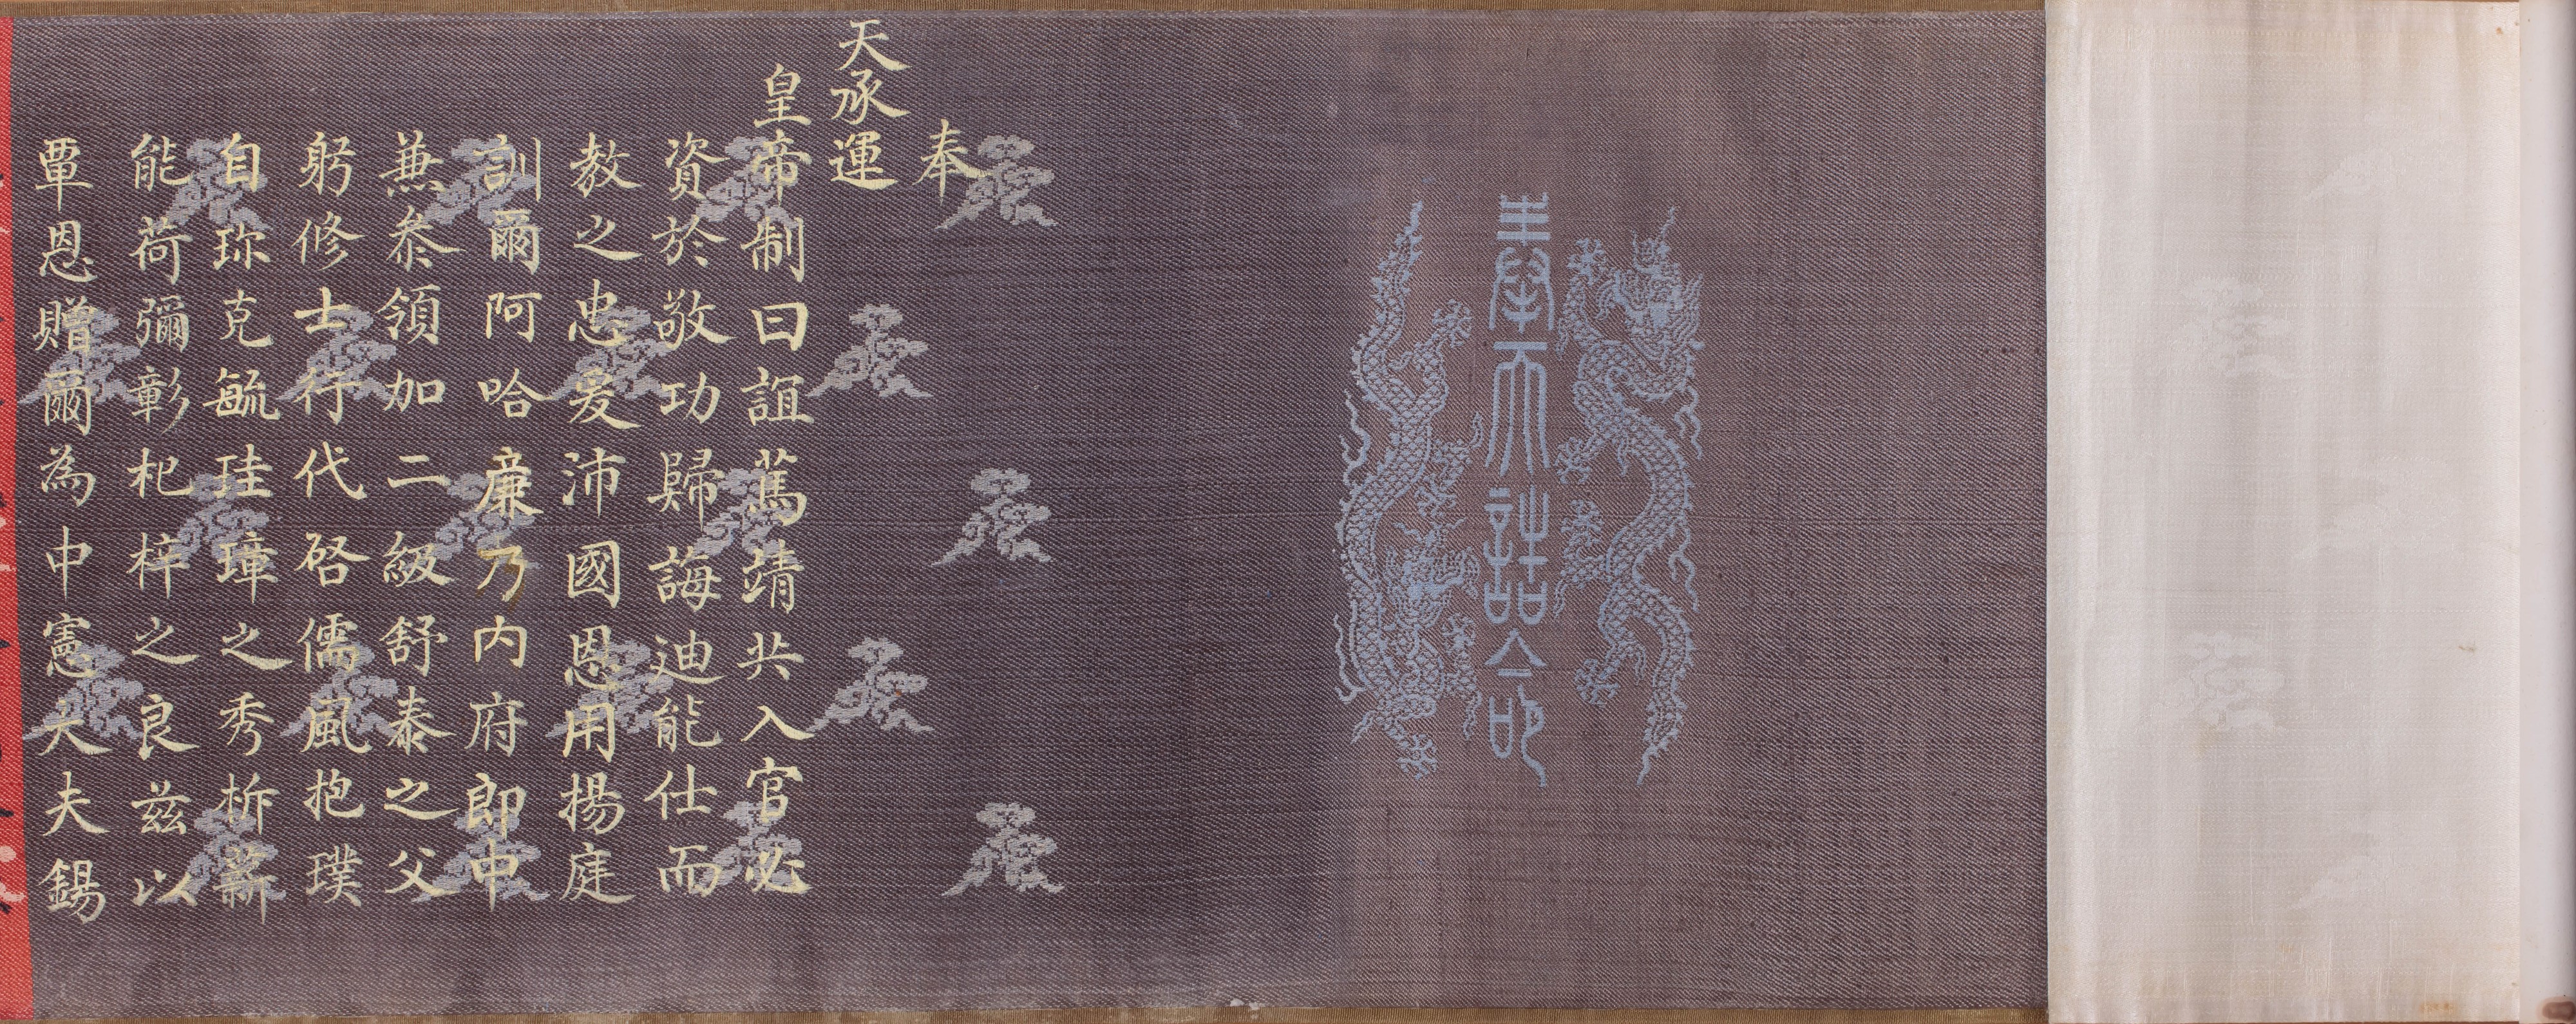 奉天誥命
奉
天承運
皇帝制曰誼篤靖共入官必
資於敬功歸誨迪能仕而
教之忠爰沛國恩用揚庭
訓爾阿哈廉乃內府郎中
兼叅領加二級舒泰之父
躬修士行代啓儒風抱璞
自珎克毓珪璋之秀析薪
能荷彌彰杞梓之良茲以
覃恩贈爾為中憲大夫錫